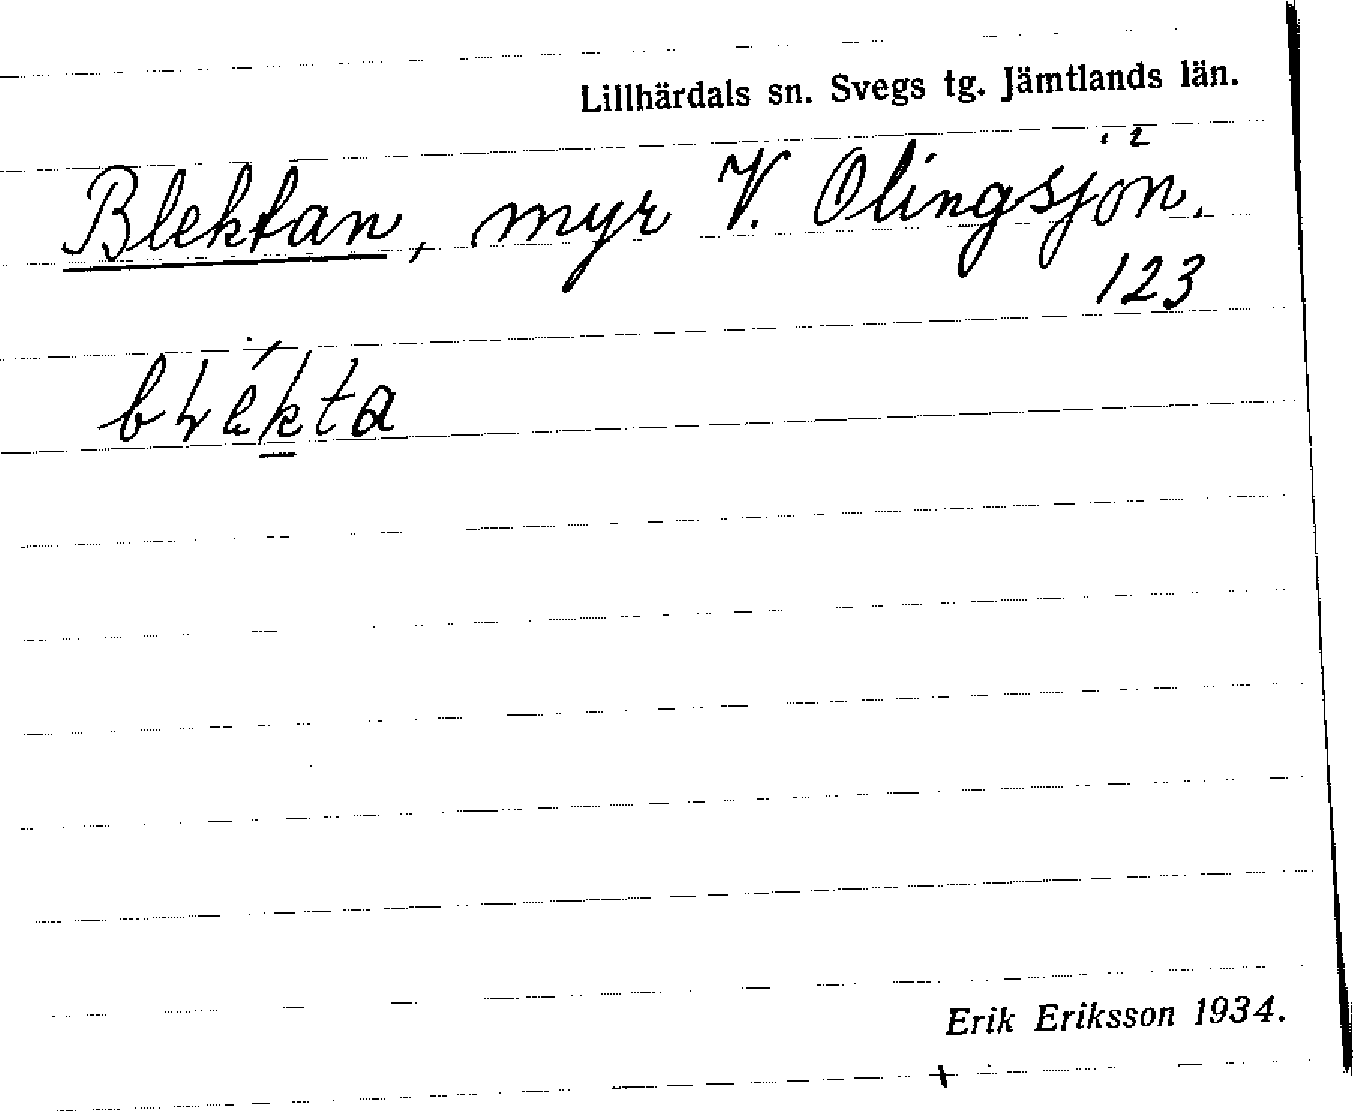 Lillhärdals sn. Svegs tg. Jämtlands län.
Blektan, myr V. Olingsjön.
123
blékta
Erik Eriksson 1934.